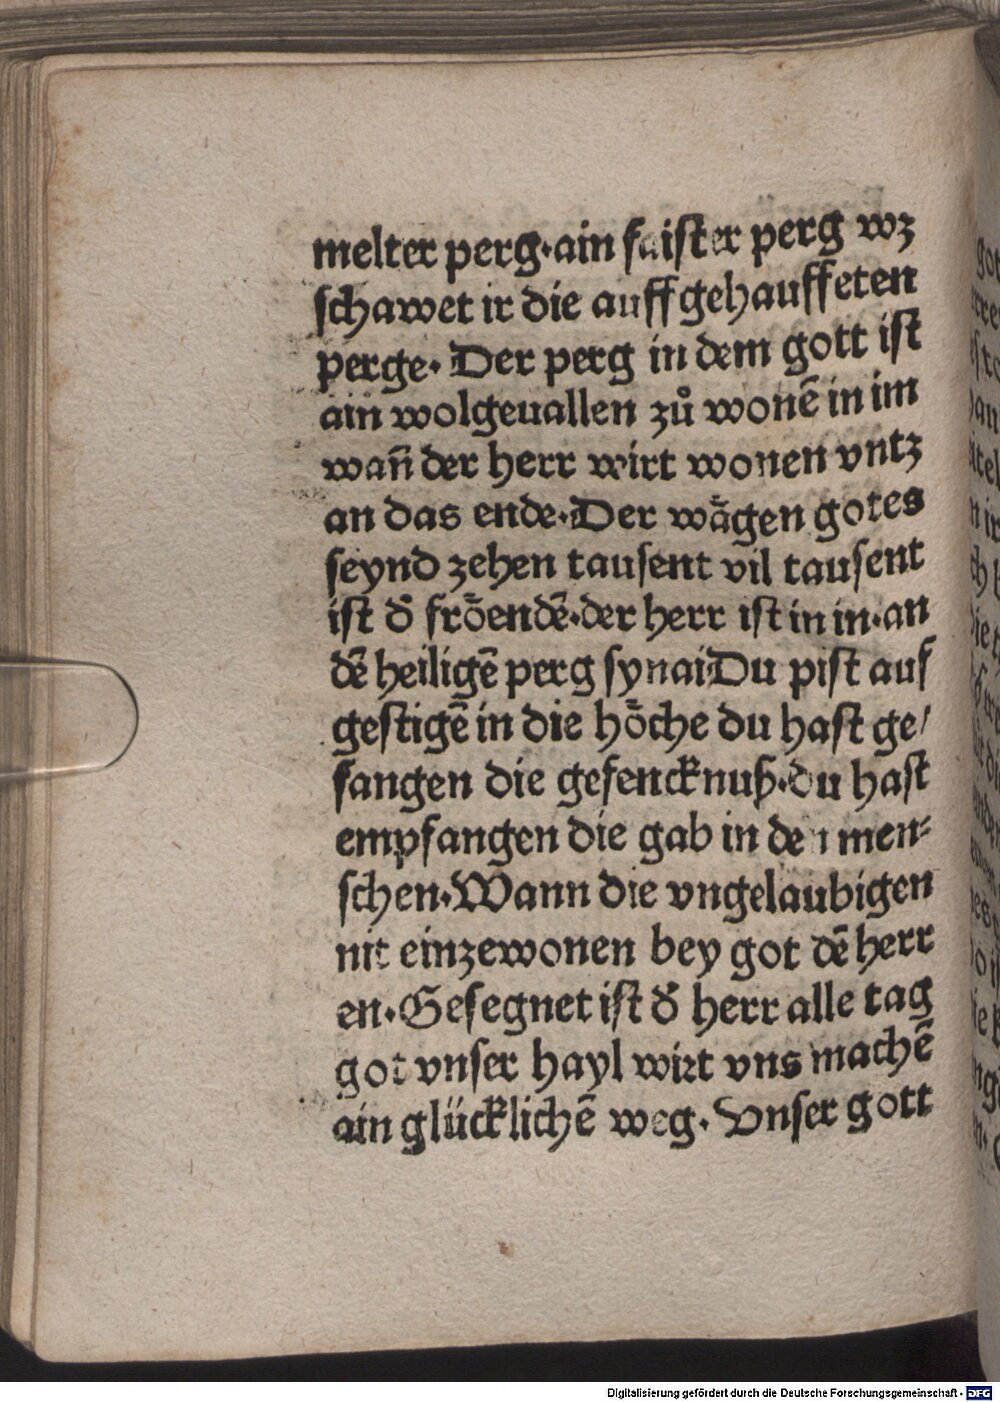 melter perg·ain faister perg wꝫ
schawet ir die auffgehauffeten
perge· Der perg in dem gott ist
ain wolgeuallen zů wonē in im
wan̄ der herr wirt wonen vntz
an das ende·Der waͤgen gotes
seynd zehen tausent vil tausent
ist d̕ froͤendē·der herr ist in in·an
dē heiligē perg synai Du pist auf
gestigē in die hoͤche du hast ge/
fangen die gefencknuß·du hast
empfangen die gab in den men⸗
schen·Wann die vngelaubigen
nit einzewonen bey got dē herr
en·Gesegnet ist d̕ herr alle tag
got vnser hayl wirt vns machē
ain glücklichē weg· Vnser gott
Digitalisierung gefördert durch die Deutsche Forschungsgemeinschaft - DFG